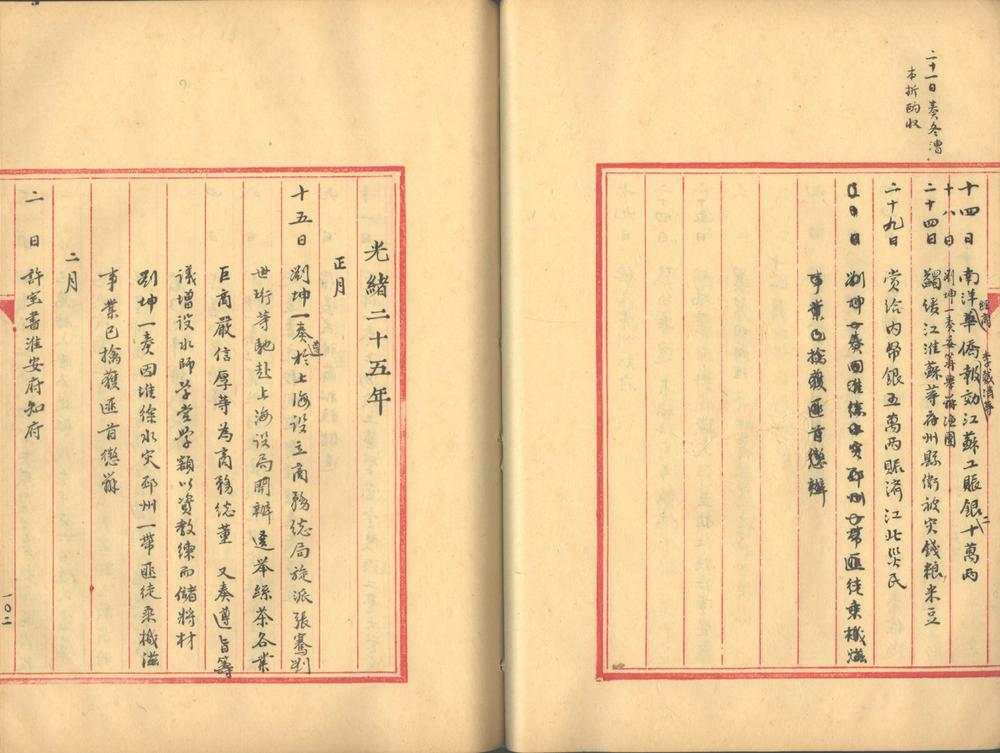 二十一日 奏冬漕
本折酌收
十四日 南洋華僑報効江蘇工賑銀十萬兩
經商
李鍼濟等
二
十八日 劉坤一奏妥籌舉辦漁團
二十四日 蠲緩江淮蘇等府州縣衛被災錢粮米豆
二十九日 賞給内帑銀五萬兩賑濟江北災民
日 劉坤一奏因淮徐水災邳州一帶匪徒乘機滋
事業已擒獲匪首懲辦
光緒二十五年
正月
十五日 劉坤一奏遵於上海設立商務總局旋派張謇劉
世珩等馳赴上海設局開辦選举絲茶各業
巨商嚴信厚等為商務總董 又奏遵旨籌
議增設水師学堂学額以資教練而儲將材
劉坤一奏因淮徐水災邳州一帶匪徒乘機滋
事業已擒獲匪首懲辦
二月
二日 許宝書淮安府知府
一〇二